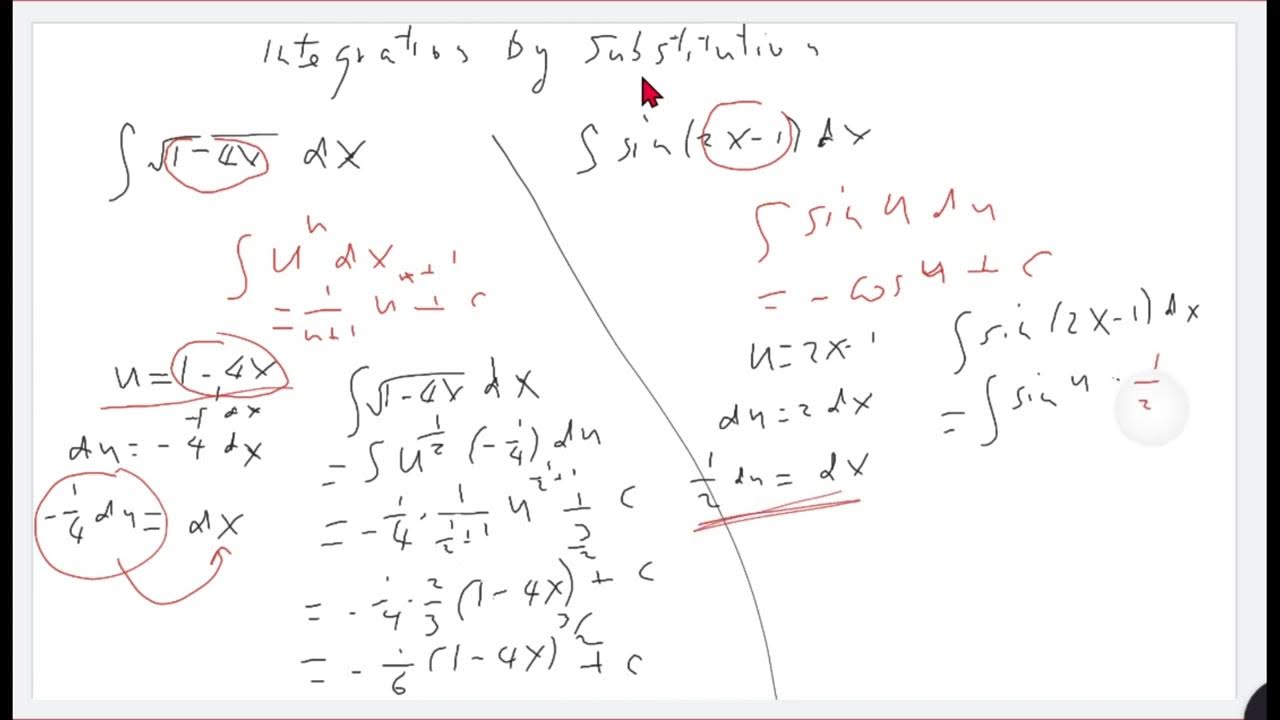 Integration by Substitution
∫ √(1-4x) dx
∫ u^n dx
= 1/(n+1) u^(n+1) + c
u = 1-4x
du = -4 dx
-1/4 du = dx
∫ √(1-4x) dx
= ∫ u^(1/2) (-1/4) du
= -1/4 · 1/(1/2+1) u^(1/2+1) + c
= -1/4 · 2/3 (1-4x)^(3/2) + c
= -1/6 (1-4x)^(3/2) + c
∫ sin(2x-1) dx
∫ sin u du
= -cos u + c
u = 2x-1
du = 2 dx
1/2 du = dx
∫ sin(2x-1) dx
= ∫ sin u · 1/2